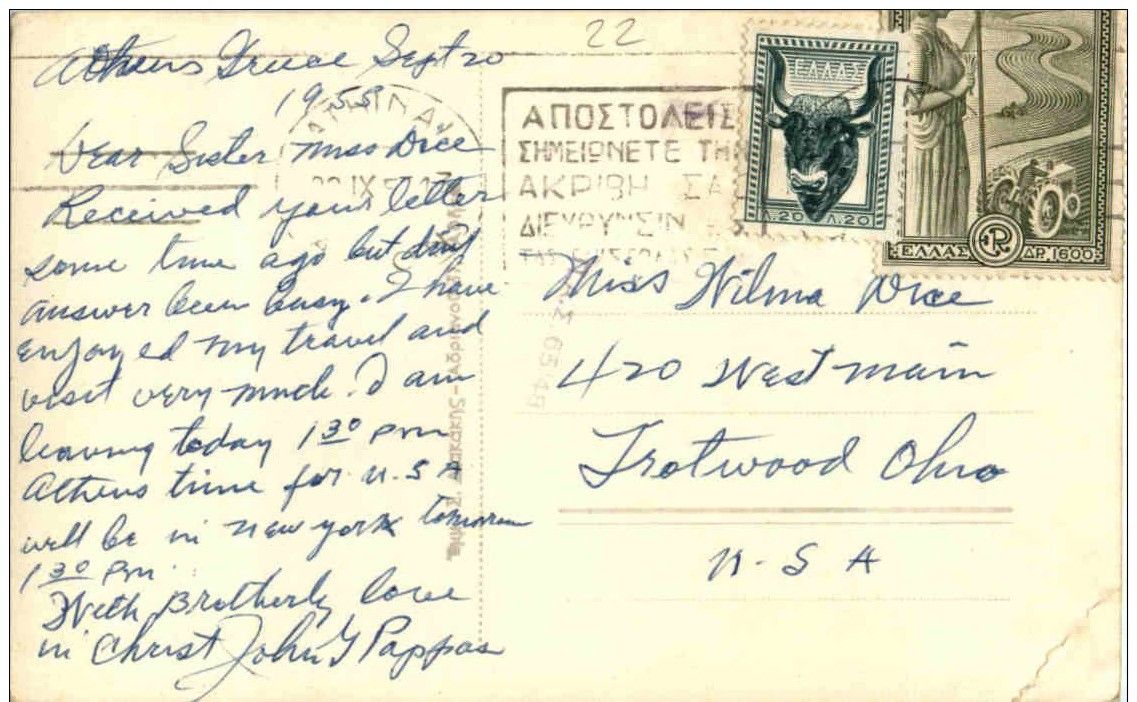 22
Athens Greece Sept 20
1955
Dear Sister Miss Dice
Received your letter
some time ago but didnt
answer been busy. I have
enjoyed my travel and
visit very much. I am
leaving today 1 30 pm
Athens time for U.S A
will be in New york tomorrow
1 30 pm.
With Brotherly love
in Christ John G Pappas
ΑΠΟΣΤΟΛΕΙΣ
ΣΗΜΕΙΩΝΕΤΕ ΤΗΝ
ΑΚΡΙΒΗ ΣΑΣ
ΔΙΕΥΘΥΝΣΙΝ
ΕΛΛΑΣ
Λ.20 Λ.20
ΕΛΛΑΣ ΔΡ.1600
Miss Wilma Dice
420 West main
Trotwood Ohio
U-S A